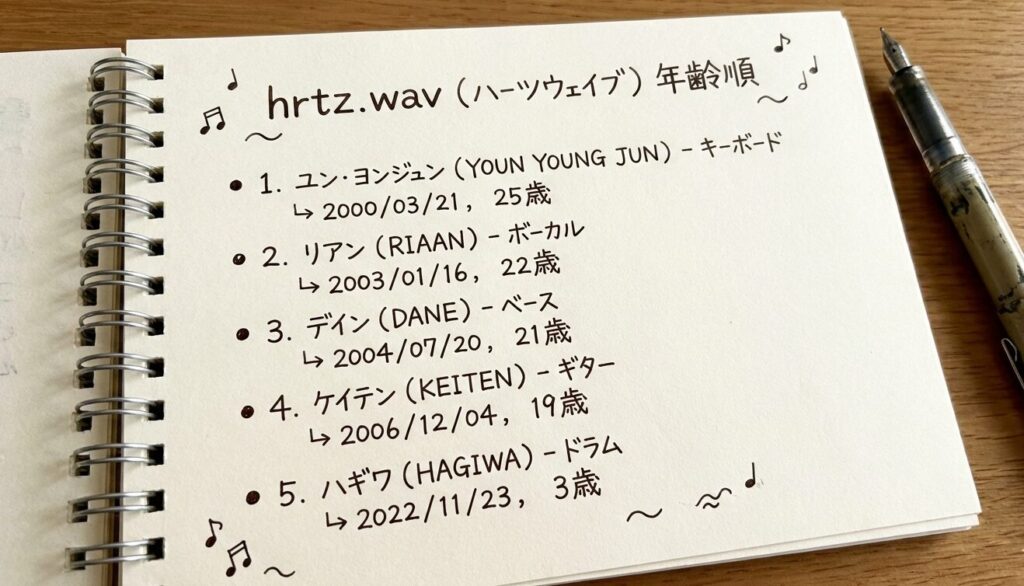 hrtz.wav (ハーツウェイブ) 年齢順
• 1. ユン・ヨンジュン (YOUN YOUNG JUN) - キーボード
↳ 2000/03/21, 25歳
• 2. リアン (RIAAN) - ボーカル
↳ 2003/01/16, 22歳
• 3. デイン (DANE) - ベース
↳ 2004/07/20, 21歳
• 4. ケイテン (KEITEN) - ギター
↳ 2006/12/04, 19歳
• 5. ハギワ (HAGIWA) - ドラム
↳ 2022/11/23, 3歳